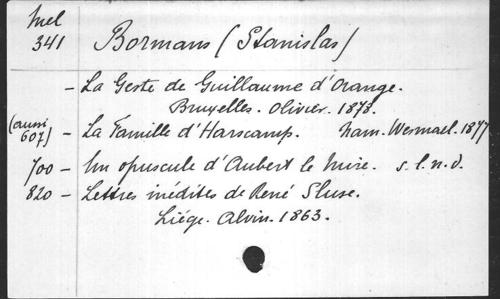 Mel
341 Bormans (Stanislas)
- La Geste de Guillaume d'Orange.
Bruxelles. Olivier. 1878.
(aussi
607) - La Famille d'Harscamp. Nam. Wesmael. 1877
700 - Un opuscule d'Aubert le Mire. s. l. n. d.
820 - Lettres inédites de René Sluse.
Liége. Alvin. 1863.